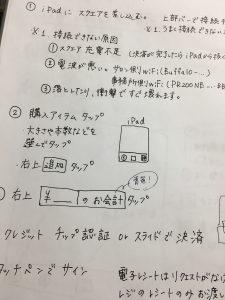 ① iPadに スクエアを差し込む。
上部バーで接続
※1. 接続できない原因
※1. うまくできない
① スクエア 充電不足 (決済が完了したら iPadから抜く
② 電波が悪い。サロン側WiFi (Buffalo-…)
事務所側WiFi (PR200NE…
③ 落としたり、衝撃ですぐ壊れます。
② 購入アイテム タップ
大きさや本数などを
選んでタップ
iPad
・右上 追加 タップ
青色!
右上 ¥ のお会計 タップ
クレジット チップ認証 or スライドで決済
タッチペンでサイン
電子レシートはリクエストがな
レジのレシートのみお渡し